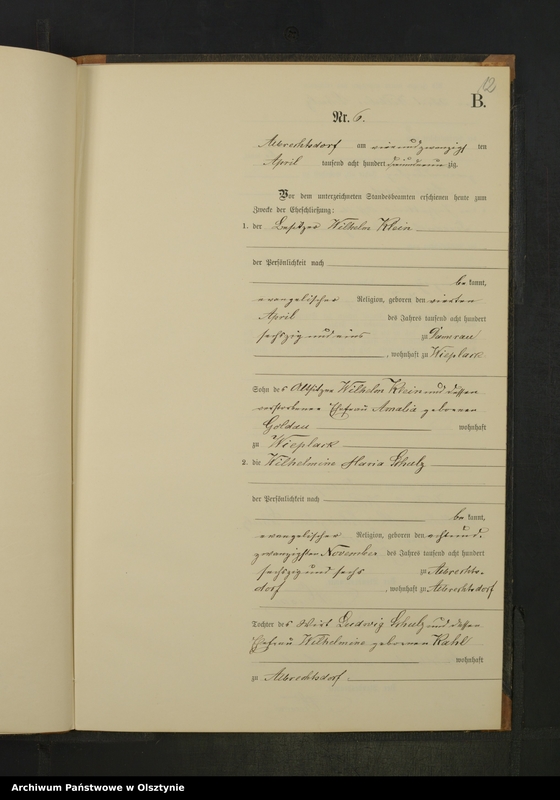 12
B.
Nr. 6.
Albrechtsdorf am vierundzwanzigsten
April tausend acht hundert zig.
Vor dem unterzeichneten Standesbeamten erschienen heute zum
Zwecke der Eheschließung:
1. der Besitzer Wilhelm Klein
der Persönlichkeit nach
bekannt,
evangelischer Religion, geboren den vierten
April des Jahres tausend acht hundert
sechszig und eins zu Damerau
, wohnhaft zu Wieplack
Sohn des Altsitzer Wilhelm Klein und dessen
verstorbenen Ehefrau Amalia geborenen
Goldau wohnhaft
zu Wieplack
2. die Wilhelmine Maria Schulz
der Persönlichkeit nach
bekannt,
evangelischer Religion, geboren den achtund.
zwanzigsten November des Jahres tausend acht hundert
sechszig und sechs zu Albrechts-
dorf , wohnhaft zu Albrechtsdorf
Tochter des Wirt Ludwig Schulz und dessen
Ehefrau Wilhelmine geborenen Kahl
wohnhaft
zu Albrechtsdorf
Archiwum Państwowe w Olsztynie